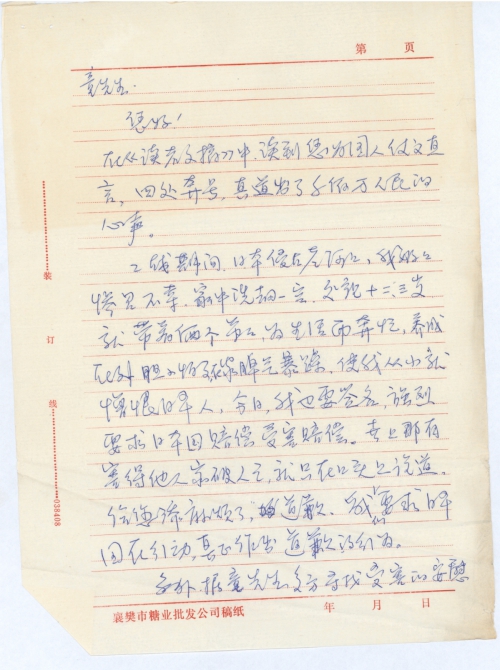 第 页
童先生.
您好!
在《读者文摘》中,读到您为国人仗义直
言,四处奔号,真道出了千千万万人民的
心声。
二战期间,日本侵占老河口,我母亲
惨遭不幸.家中洗劫一空.父亲十二三岁
就带着俩个弟弟,为生活而奔忙,养成
在外胆小怕事 脾气暴躁,使我从小就
憎恨日本人,今日,我也要签名,强烈
要求日本国赔偿受害赔偿。世上那有
害得他人家破人亡,就只在口头上说道.
给您添麻烦了,道歉.我们要求日本
国在行动,真正作出道歉的行为。
另外.据童先生多方寻找受害的安慰
装
订
线
038408
襄樊市糖业批发公司稿纸 年 月 日